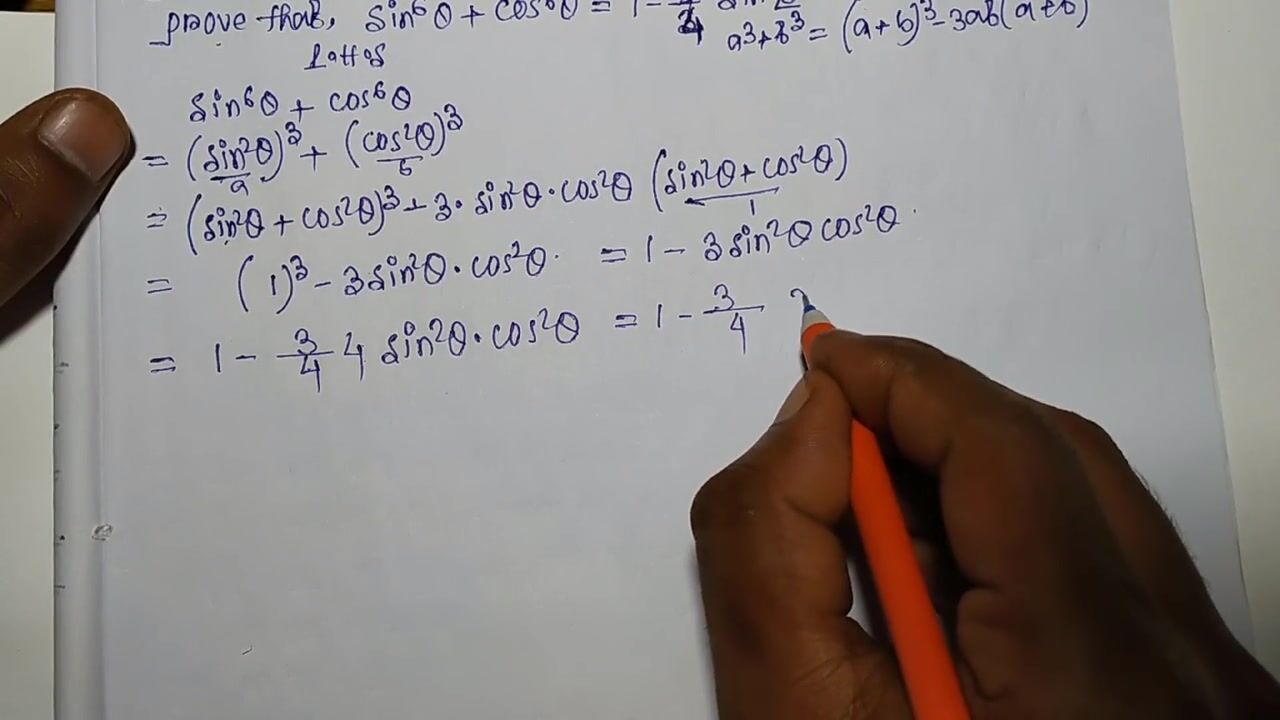 prove that, sin⁶θ + cos⁶θ = 1 - 3/4
a³+b³ = (a+b)³-3ab(a+b)
sin⁶θ + cos⁶θ
= (sin²θ)³ + (cos²θ)³
a b
= (sin²θ + cos²θ)³ - 3· sin²θ · cos²θ (sin²θ + cos²θ)
1
= (1)³ - 3sin²θ · cos²θ · = 1 - 3sin²θ cos²θ ·
= 1 - 3/4 4 sin²θ · cos²θ = 1 - 3/4